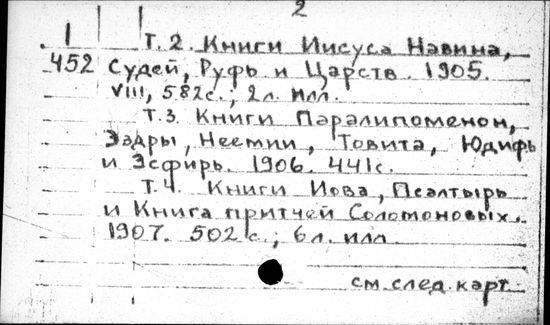 2
1
Т. 2. Книги Иисуса Навина,
452 Судей, Руфь и Царств. 1905.
VIII, 582с.; 2л. илл.
Т.3. Книги Паралипоменон,
Эздры, Неемии, Товита, Юдифь
и Эсфирь. 1906. 441с.
Т.4. Книги Иова, Псалтырь
и Книга притчей Соломоновых.
1907. 502 с.; 6 л. илл.
см. след. карт.